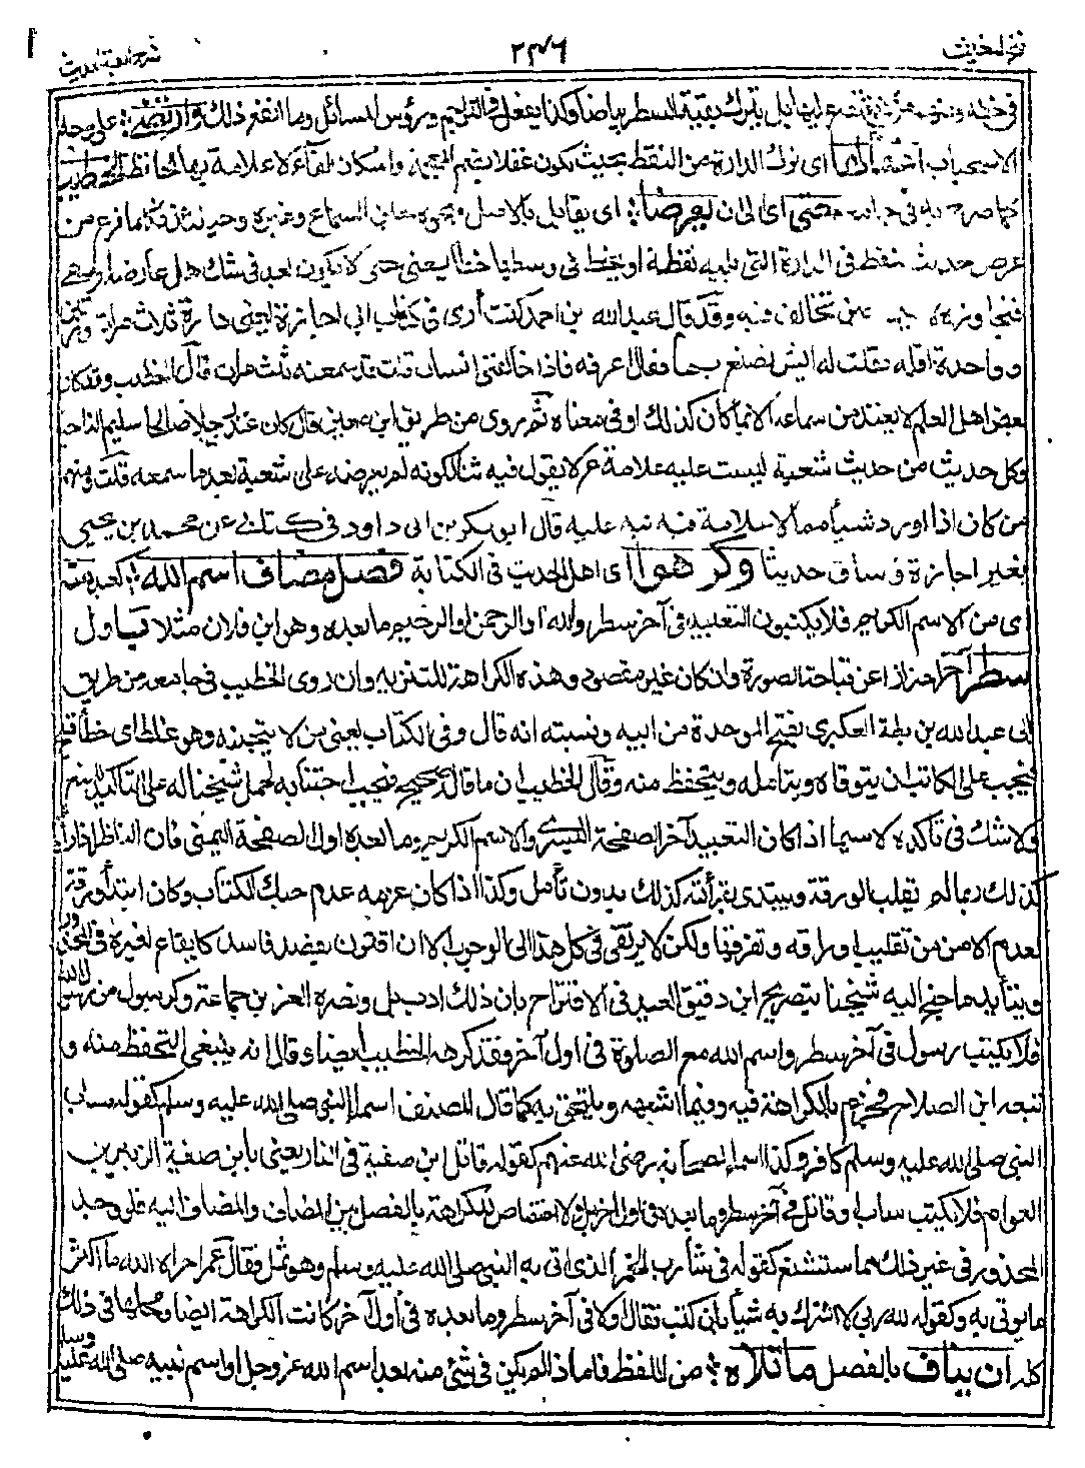 فتح المغيث ٢٣٦ شرح الفية الحديث
بل يترك بقية السطر بياضا وكذا يفعل في التراجم ورؤس المسائل وما انفع ذلك وارتضى على وجه
الاستحباب اى ترك الدارة من النقط بحيث تكون غفلا بضم المعجمة واسكان الفاء لا علامة بها الحافظ الخطيب
كما صرح به في جامعه حتى اى الى ان يعرضا اى يقابل بالاصل ونحوه من السماع وغيره وحينئذ فكلما فرغ من
عرض حديث ينقط في الدارة التى تليه نقطة او يخط في وسطها خطا يعنى حتى لا يكون بعد في شك هل عارضه او سهى
فتجاوزه فيه وقد قال عبدالله بن احمد كنت ارى في كتاب ابى اجازة يعنى دارة ثلاث مرات ومرتين
وواحدة اقله فقلت له ايش تصنع بها فقال اعرفه فاذا خالفنى انسان قلت قد سمعته ثلث مرات قال الخطيب وقد كان
بعض اهل العلم لا يعتد من سماعه الا بما كان كذلك او في معناه ثم روى من طريق ابن معين قال كان غندر رجلا صالحا سليم الناحية
وكل حديث من حديث شعبة ليست عليه علامة عر لا يقول فيه ثنا لكونه لم يعرضه على شعبة بعد ما سمعه قلت ومنهم
من كان اذا اورد شيأ مما لا علامة فيه نبه عليه قال ابوبكر بن ابى داود في كتابى عن محمد بن يحيى
بغير اجازة وساق حديثا وكرهوا اى اهل الحديث في الكتابة فصل مضاف اسم الله كعبد منه
اى من الاسم الكريم فلا يكتبون التعبيد في آخر سطر والله او الرحمن او الرحيم وما بعده وهو ابن فلان مثلا باول
سطر آخر احترازا عن قباحة الصورة وان كان غير مقصود وهذه الكراهة للتنزيه وان روى الخطيب في جامعه من طريق
ابى عبدالله بن بطة العكبرى بفتح الموحدة من ابيه ونسبته انه قال وفي الكتاب يعنى من لا يتجنبه وهو غلط اى خطأ قبيح
فيجب على الكاتب ان يتوقاه ويتامله ويتحفظ منه وقال الخطيب ان ما قاله صحيح فيجب اجتنابه لحمل شيخنا له على التاكيد للمنع
ولا شك في تأكده لا سيما اذا كان التعبيد آخر الصفحة اليسرى والاسم الكريم وما بعده اول الصفحة اليمنى فان الناظر اذا رأه
كذلك ربما لم يقلب الورقة ويبتدى بقرأته كذلك بدون تأمل وكذا اذا كان عزمه عدم حبك الكتاب وكان ابتدأ ورقة
لعدم الامن من تقليب اوراقه وتفرقها ولكن لا يرتقى في كل هذا الى الوجوب الا ان اقترن بقصد فاسد كايقاع لغيره في المحذور
ويتأيد ما جنح اليه شيخنا بتصريح ابن دقيق العيد في الاقتراح بان ذلك ادب بل ونصره العز بن جماعة وكرسول من رسول الله
فلا يكتب رسول في آخر سطر واسم الله مع الصلوة في اول آخر فقد كرهه الخطيب ايضا وقال انه ينبغى التحفظ منه و
تبعه ابن الصلاح فجزم بالكراهة فيه وفيما اشبهه ويلتحق به كما قال المصنف اسماء النبى صلى الله عليه وسلم كقوله ساب
النبى صلى الله عليه وسلم كافر وكذا اسماء الصحابة رضى الله عنهم كقوله قاتل ابن صفية في النار يعنى بابن صفية الزبير بن
العوام فلا يكتب ساب او قاتل في آخر سطر وما بعده في اول آخر بل ولا اختصاص للكراهة بالفصل بين المضاف والمضاف اليه فلو وجد
المحذور في غير ذلك مما استشنع كقوله في شأرب الخمر الذى اتى به النبى صلى الله عليه وسلم وهو ثمل فقال عمر اخزاه الله ما اكثر
ما يوتى به وكقوله الله ربى لا اشرك به شيأ بان كتب فقال او لا في آخر سطر وما بعده في اول آخر كانت الكراهة ايضا ومحلها في ذلك
كله ان يناف بالفصل ما تلاه من اللفظ فاما اذا لم يكن في شئى منه بعد اسم الله عز وجل او اسم نبيه صلى الله عليه وسلم